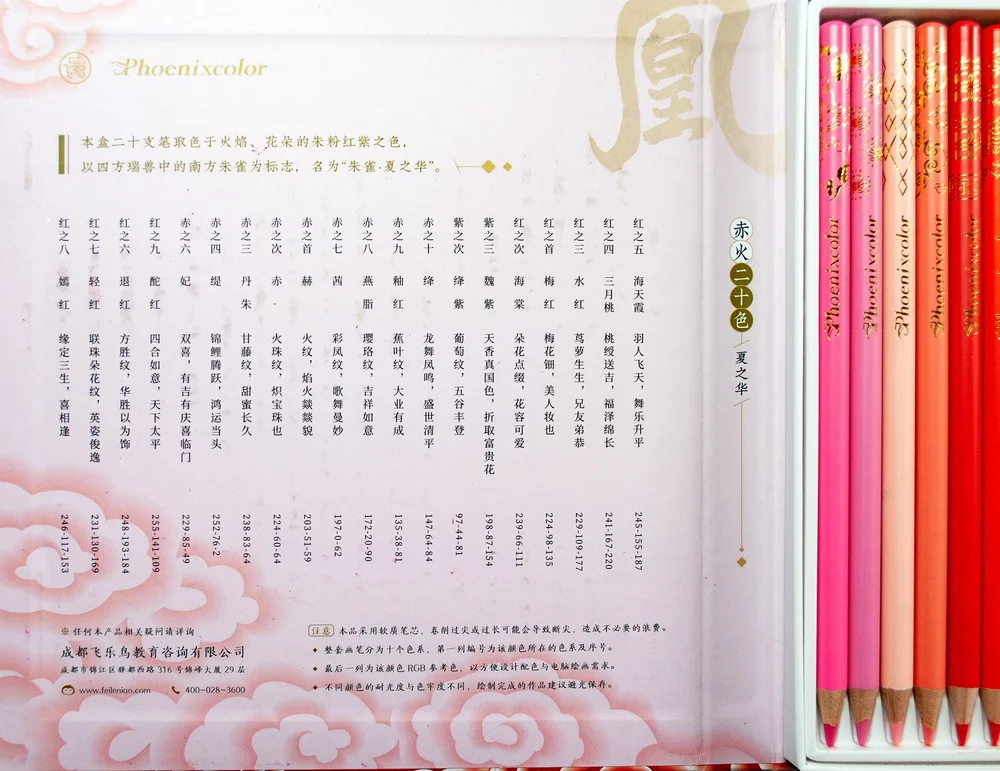 Phoenixcolor
凰
本盒二十支笔取色于火焰、花朵的朱粉红紫之色，
以四方瑞兽中的南方朱雀为标志，名为“朱雀·夏之华”。
赤火二十色 夏之华
红之五 海天霞 羽人飞天，舞乐升平 245-155-187
红之四 三月桃 桃绶送吉，福泽绵长 241-167-220
红之三 水红 茑萝生生，兄友弟恭 229-109-177
红之首 梅红 梅花钿，美人妆也 224-98-135
红之次 海棠 朵花点缀，花容可爱 239-66-111
紫之三 魏紫 天香真国色，折取富贵花 198-87-154
紫之次 绛紫 葡萄纹，五谷丰登 97-44-81
赤之十 绛 龙舞凤鸣，盛世清平 147-64-84
赤之九 釉红 蕉叶纹，大业有成 135-38-81
赤之八 燕脂 璎珞纹，吉祥如意 172-20-90
赤之七 茜 彩凤纹，歌舞曼妙 197-0-62
赤之首 赫 火纹，焰火燚燚貌 203-51-59
赤之次 赤 火珠纹，炽宝珠也 224-60-64
赤之三 丹朱 甘藤纹，甜蜜长久 238-83-64
赤之四 缇 锦鲤腾跃，鸿运当头 252-76-2
赤之六 妃 双喜，有吉有庆喜临门 229-85-49
红之九 酡红 四合如意，天下太平 255-141-109
红之六 退红 方胜纹，华胜以为饰 248-193-184
红之七 轻红 联珠朵花纹，英姿俊逸 231-130-169
红之八 嫣红 缘定三生，喜相逢 246-117-153
※ 任何本产品相关疑问请详询
成都飞乐鸟教育咨询有限公司
成都市锦江区驿都西路 316 号锦峰大厦 29 层
www.feileniao.com 400-028-3600
注意 本品采用软质笔芯，卷削过尖或过长可能会导致断尖，造成不必要的浪费。
整套画笔分为十个色系，第一列编号为该颜色所在的色系及序号。
最后一列为该颜色 RGB 参考色，以方便设计配色与电脑绘画需求。
不同颜色的耐光度与色牢度不同，绘制完成的作品建议避光保存。
Phoenixcolor
Phoenixcolor
Phoenixcolor
Phoenixcolor
Phoenixcolor